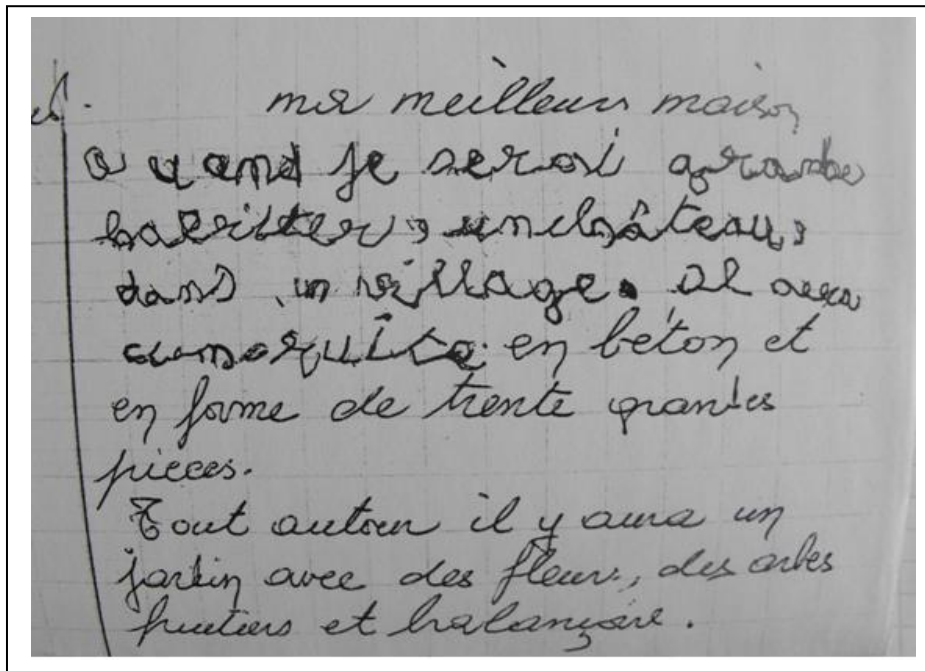 ma meilleurs maison
quand je serai grande
habiter, un château,
dans un village. Il aura
en béton et
en forme de trente grandes
pieces.
Tout autour il y aura un
jardin avec des fleurs, des arbes
fruitiers et balançoire.